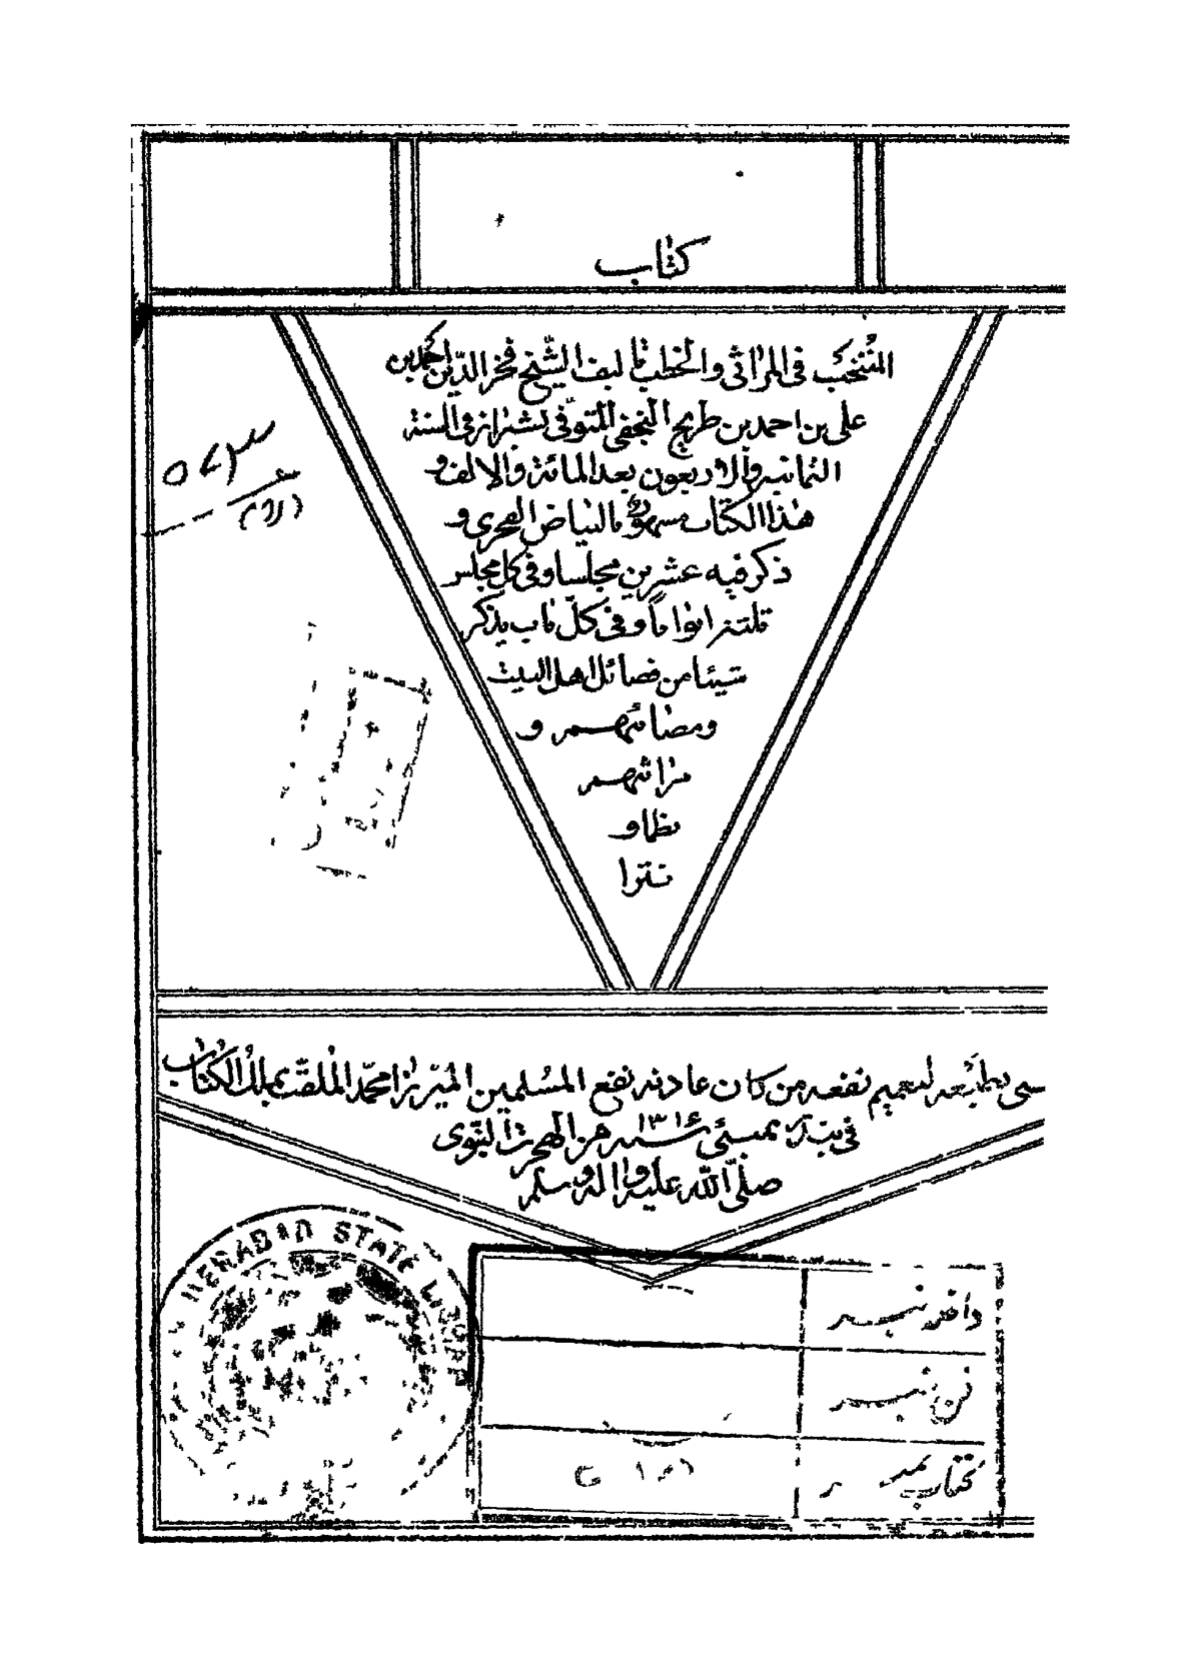 كتاب
المنتخب فى المراثى والخطب تاليف الشّيخ فخر الدّين احمد بن
على بن احمد بن طريح النجفى المتوفّى بشيراز فى السنة
الثمانيه والاربعون بعد المائة والالف و
هذا الكتاب مشهور بالبياض الفخرى و
ذكر فيه عشرين مجلسا و فى كل مجلس
ثلثه ابوابا و فى كلّ باب يذكر
شيئا من فضائل اهل البيت
ومصائبهم و
مراثيهم
نظما و
نثرا
سعى بطبعه لتعميم نفعه من كان عادته نفع المسلمين الميرزا محمّد الملقّب بملك الكتاب
فى بندر بمبئى ۱۳۱۶سنه من الهجرة النبوى
صلّى الله عليه واله وسلم
STATE
داخله نمبر
فن نمبر
كتاب نمبر